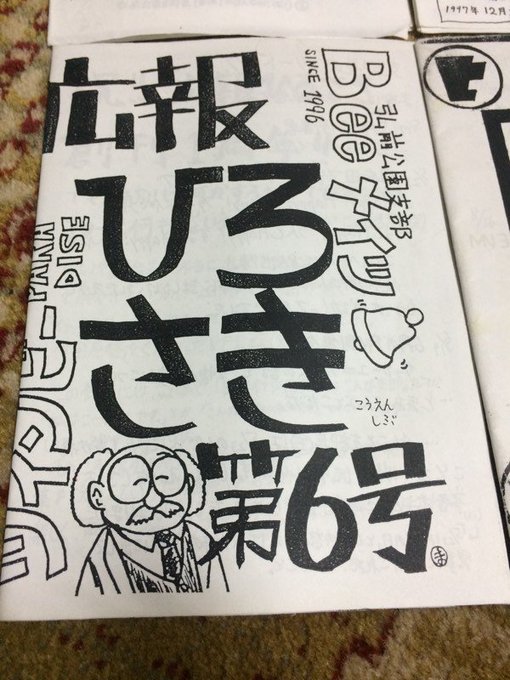 1997年12月
広報
ひろ
さき
第6号
SINCE 1996
Bee ナイツ
弘前公園支部
こうえん
しぶ
ツインビー
PARA
DISE